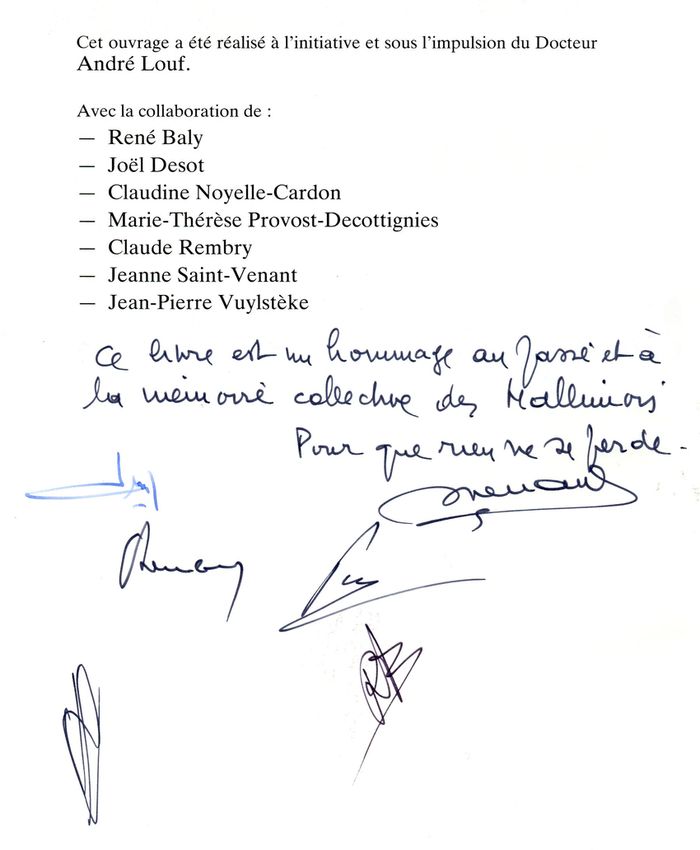 Cet ouvrage a été réalisé à l'initiative et sous l'impulsion du Docteur
André Louf.
Avec la collaboration de :
— René Baly
— Joël Desot
— Claudine Noyelle-Cardon
— Marie-Thérèse Provost-Decottignies
— Claude Rembry
— Jeanne Saint-Venant
— Jean-Pierre Vuylstèke
Ce livre est un hommage au passé et à
la mémoire collective des Halluinois
Pour que rien ne se perde.